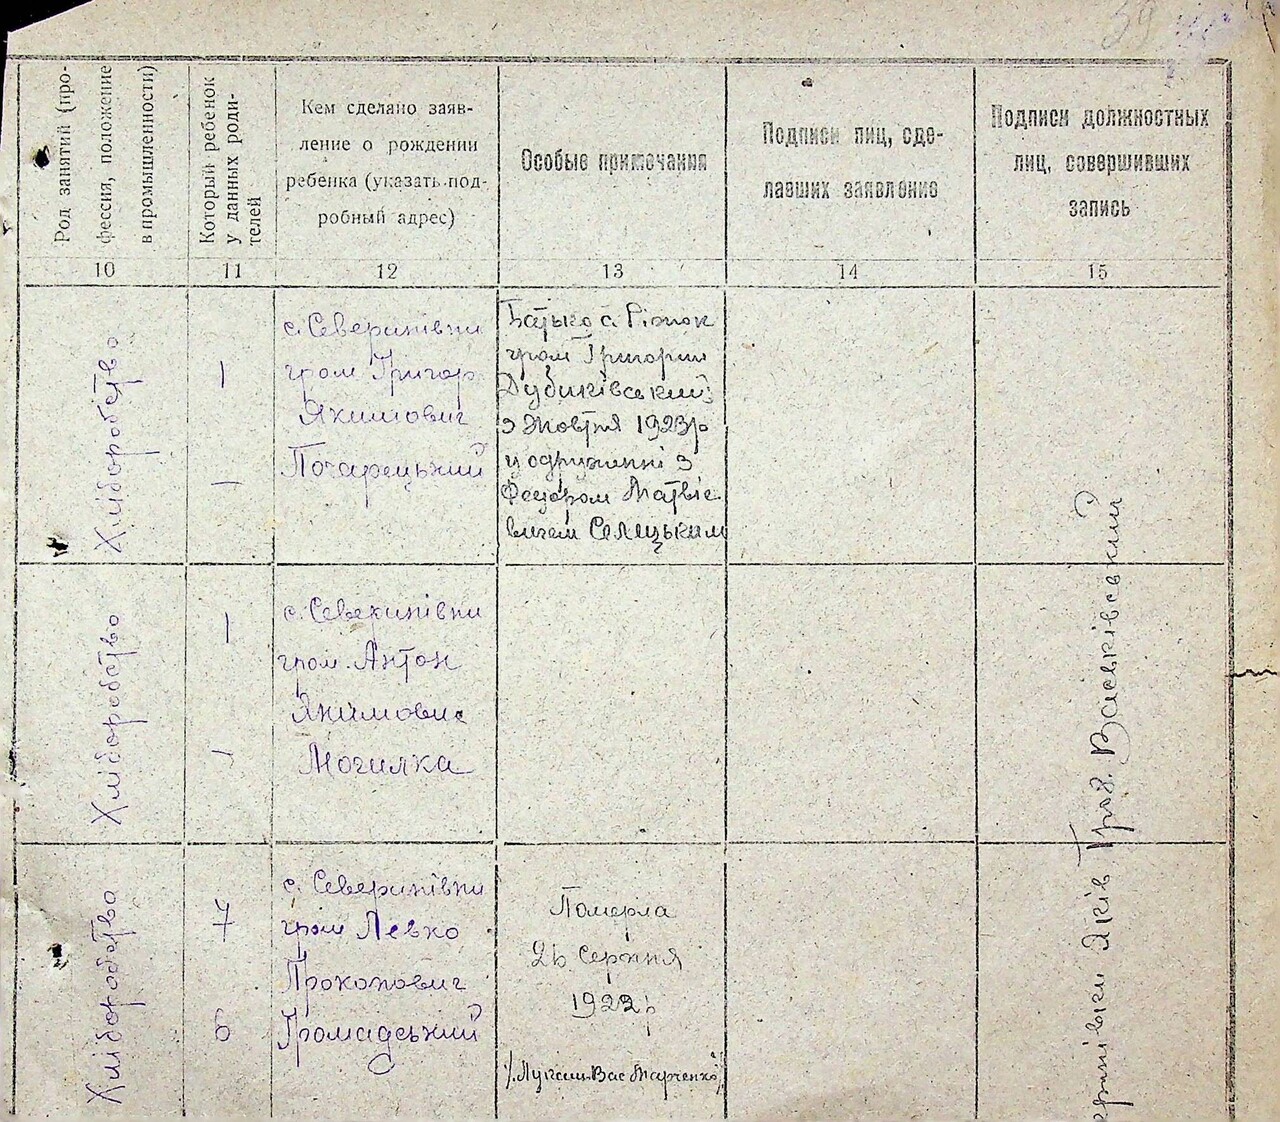 59
Род занятий (про-
фессия, положение
в промышленности)
Который ребенок
у данных роди-
телей
Кем сделано заяв-
ление о рождении
ребенка (указать под-
робный адрес)
Особые примечания
Подписи лиц, сде-
лавших заявление
Подписи должностных
лиц, совершивших
запись
10
11
12
13
14
15
Хліборобство
1
1
с. Северинівки
гром Григор
Якимович
Почарецький
Батько с.
гром Григорий
Жовтня 1923р
у одруженні з
Федором Матвіє
вичем Селецьким
Хліборобство
1
1
с. Северинівки
гром. Антон
Якимович
Могилка
Хліборобства
7
6
с. Северинівки
гром Левко
Прокопович
Громадський
Померла
26 серпня
1922р
Вас Марченко
Яків Гро. Васьківський